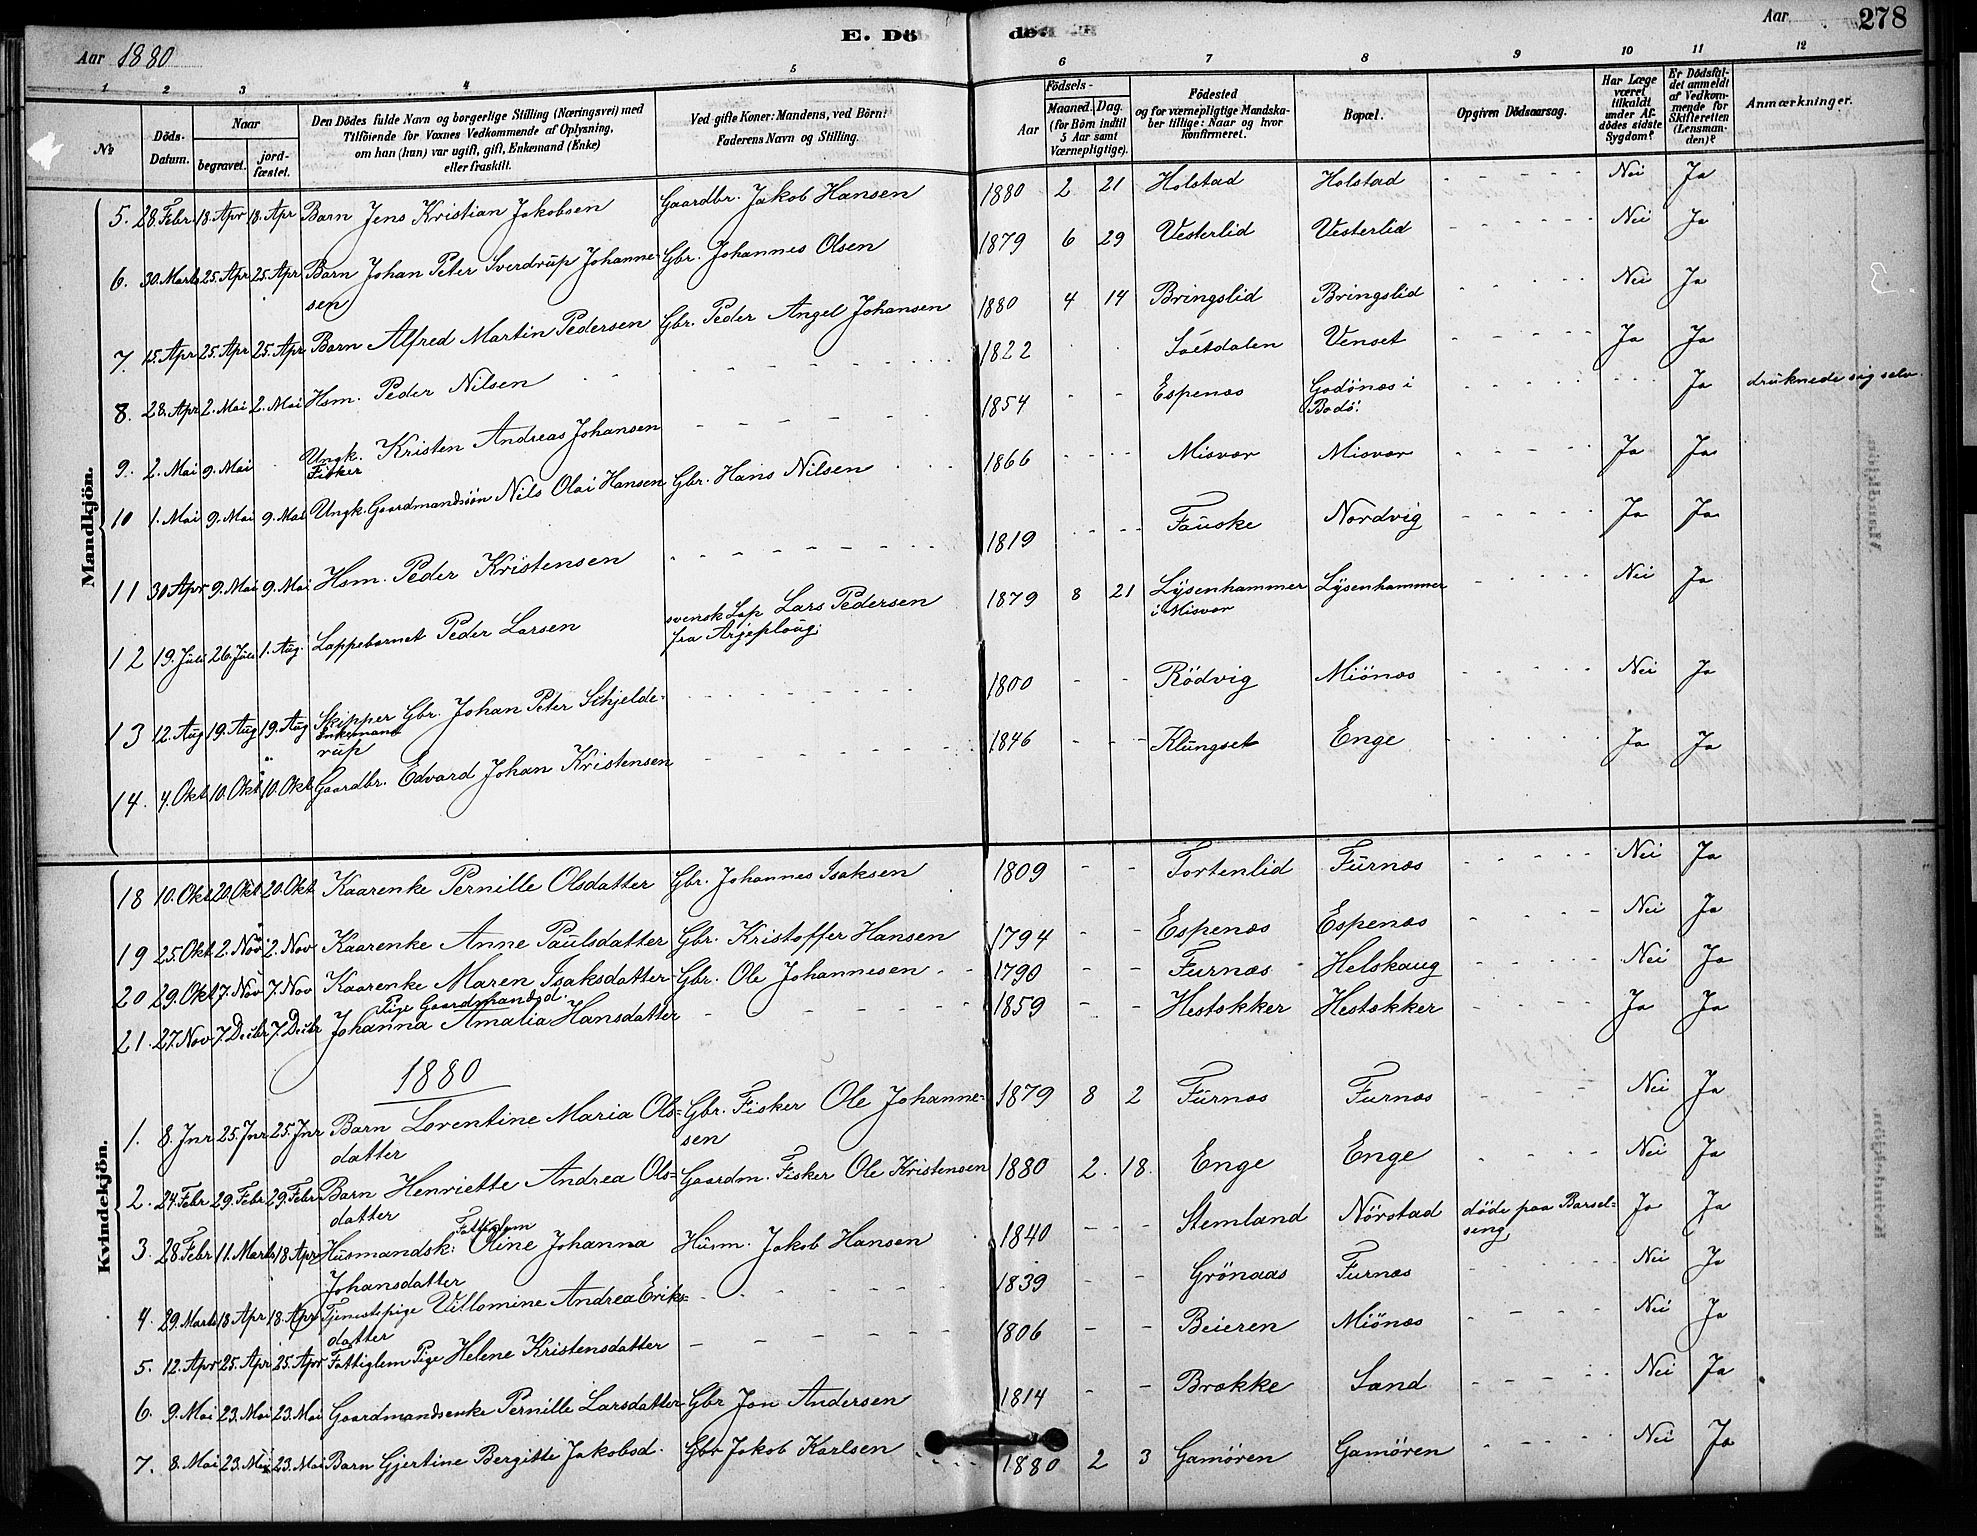 E. Dö
döt
Aar
278
Aar 1880
1 2 3 4 5 6 7 8 9 10 11 12
№
Döds-Datum.
Naar
begravet.
jord-fæstet.
Den Dödes fulde Navn og borgerlige Stilling (Næringsvei) med
Tilföiende for Voxnes Vedkommende af Oplysning,
om han (hun) var ugift, gift, Enkemand (Enke)
eller fraskilt.
Ved gifte Koner: Mandens, ved Börn:
Faderens Navn og Stilling.
Födsels-
Aar
Maaned. Dag.
(for Börn indtil
5 Aar samt
Værnepligtige).
Födested
og for værnepligtige Mandska-
ber tillige: Naar og hvor
konfirmeret.
Bopæl.
Opgiven Dödsaarsag.
Har Læge
været
tilkaldt
under Af-
dödes sidste
Sygdom?
Er Dödsfal-
det anmeldt
af Vedkom-
mende for
Skifteretten
(Lensman-
den)?
Anmærkninger.
Mandkjön.
5. 28. Febr 18. Apr 18. Apr Barn Jens Kristian Jakobsen Gaardbr. Jakob Hansen 1880 2 21 Holstad Holstad - - - - - Nei Ja
6. 30. Marts 25. Apr 25. Apr Barn Johan Peter Sverdrup Johanne- Gbr. Johannes Olsen 1879 6 29 Vesterlid Vesterlid - - - - - Nei Ja
sen
7 15. Apr 25. Apr 25. Apr Barn Alfred Martin Pedersen Gbr. Peder Angel Johansen 1880 4 14 Bringslid Bringslid - - - - - Nei Ja
8. 28. Apr 2. Mai 2. Mai Hsm. Peder Nilsen - - - - - 1822 Sætdalen Venset - - - - Ja Ja
9. 2. Mai 9. Mai Ungk. Kristen Andreas Johansen - - - - - 1854 - - Espenæs Godönæs i Ja druknede sig selv.
Fisker
Bodö.
10 1. Mai 9. Mai 9. Mai Ungk. Gaardmandssön Nils Olai Hansen Gbr. Hans Nilsen 1866 - - - - Misvær Misvær - - - - Ja Ja
11 30 Apr 9. Mai 9. Mai Hsm. Peder Kristensen - - - - - 1819 - - - - Fauske Nordvig - - - - - Ja Ja
12 19. Juli 26. Juli 1. Aug. Lappebarnet Peder Larsen svensk Lap Lars Pedersen 1879 8 21 Lÿsenhammer Lÿsenhammer - - - - - Nei Ja
fra Arjeploug.
i Misvær
13 12. Aug 19. Aug 19. Aug Skipper Gbr. Johan Peter Schjelde- - - - - - 1800 - - Rödvig Miönæs - - - - - Nei Ja
Enkemand
rup
14. 4. Okt 10. Okt 10. Okt Gaardbr. Edvard Johan Kristensen - - - - - 1846 - - - Klungset Enge - - - - - Ja Ja
Kvindekjön.
18 10. Okt 20. Okt 20. Okt Kaarenke Pernille Olsdatter Gbr. Johannes Isaksen 1809 - - Tortenlid Furnæs - - - - - Nei Ja
19 25. Okt 2. Nov 2. Nov Kaarenke Anne Paulsdatter Gbr. Kristoffer Hansen 1794 - - Espenæs Espenæs - - - - Nei Ja
20 29. Okt 7. Nov 7. Nov Kaarenke Maren Isaksdatter Gbr. Ole Johannesen - - 1790 - - Furnæs Helskaug - - - - - Nei Ja
Pige Gaardmandsd.
21. 27. Nov 7. Decbr 7. Decbr Johanna Amalia Hansdatter - - - - - 1859 - - Hestekker Hestekker - - - - Ja Ja
1880
1. 8. Jnr 25. Jnr 25. Jnr Barn Lorentine Maria Ols- Gbr. Fisker Ole Johanne- 1879 8 2 Furnæs Furnæs - - - Nei Ja
datter sen
2. 24. Febr 29. Febr 29. Febr Barn Henriette Andrea Ols- Gaardm. Fisker Ole Kristensen 1880 2. 18. Enge Enge - - - - Nei Ja
datter
Fattiglem
3. 28. Febr 11. Marts 18 Apr Husmandsk: Oline Johanna Husm. Jakob Hansen 1840 - - - Stemland Nörstad döde paa Barsel- Ja Ja
Johansdatter
seng
4. 29. Marts 18 Apr 18. Apr Tjenestepige Villomine Andrea Eriks- - - - - - 1839 - - Grönaas Furnæs - - - - - Nei Ja
datter
5. 12. Apr 25. Apr 25. Apr Fattiglem Pige Helene Kristensdatter - - - - - 1806 - - Beieren Miönæs - - - - Nei Ja
6. 9. Mai 23. Mai 23. Mai Gaardmandsenke Pernille Larsdatter Gbr Jon Andersen 1814 - - Brække Sand - - - - - Nei Ja
7. 8. Mai 23. Mai 23. Mai Barn Gjertine Bergitte Jakobsd. Gbr Jakob Karlsen 1880 2 3 Gamören Gamören - - - - Nei Ja